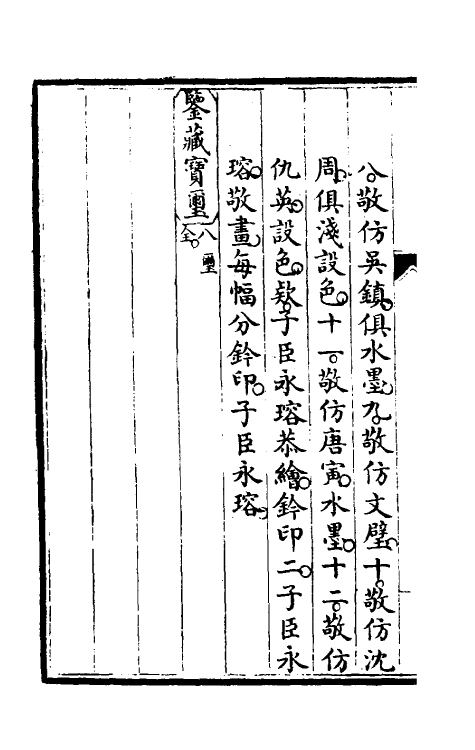 八敬仿吳鎮俱水墨九敬仿文璧十敬仿沈
周俱淺設色十一敬仿唐寅水墨十二敬仿
仇英設色欵子臣永瑢恭繪鈐印二子臣永
瑢敬畫每幅分鈐印子臣永瑢
鑒藏寶璽
八璽
全